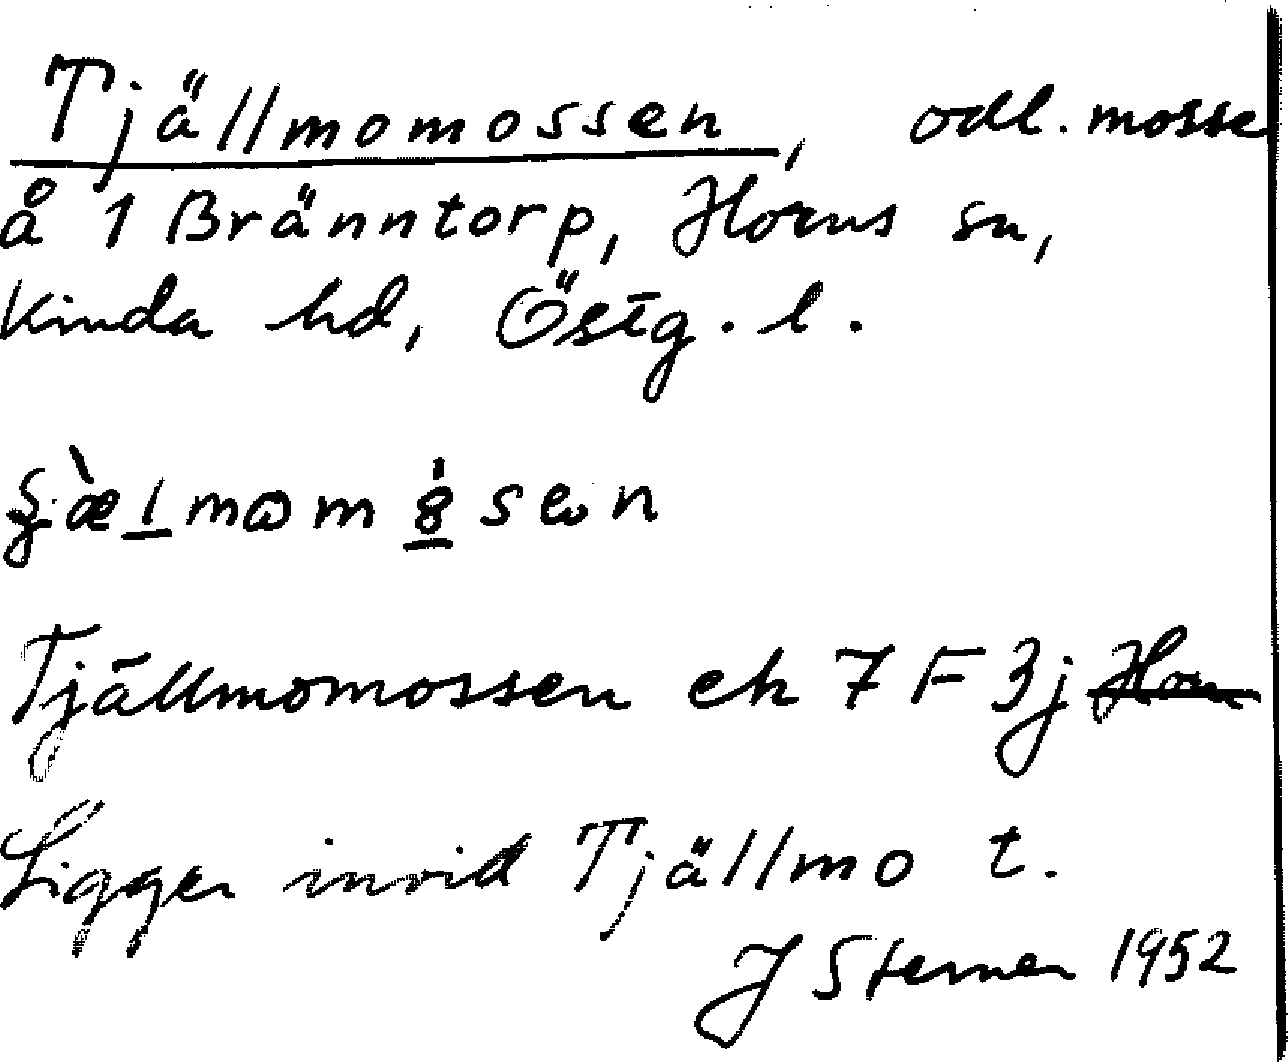 Tjällmomossen, odl. mosse
å 1 Bränntorp, Horns sn,
Kinda hd, Östg. l.
Tjällmomossen ek 7 F 3j ~~Horn~~
Ligger invid Tjällmo t.
J Sterner 1952